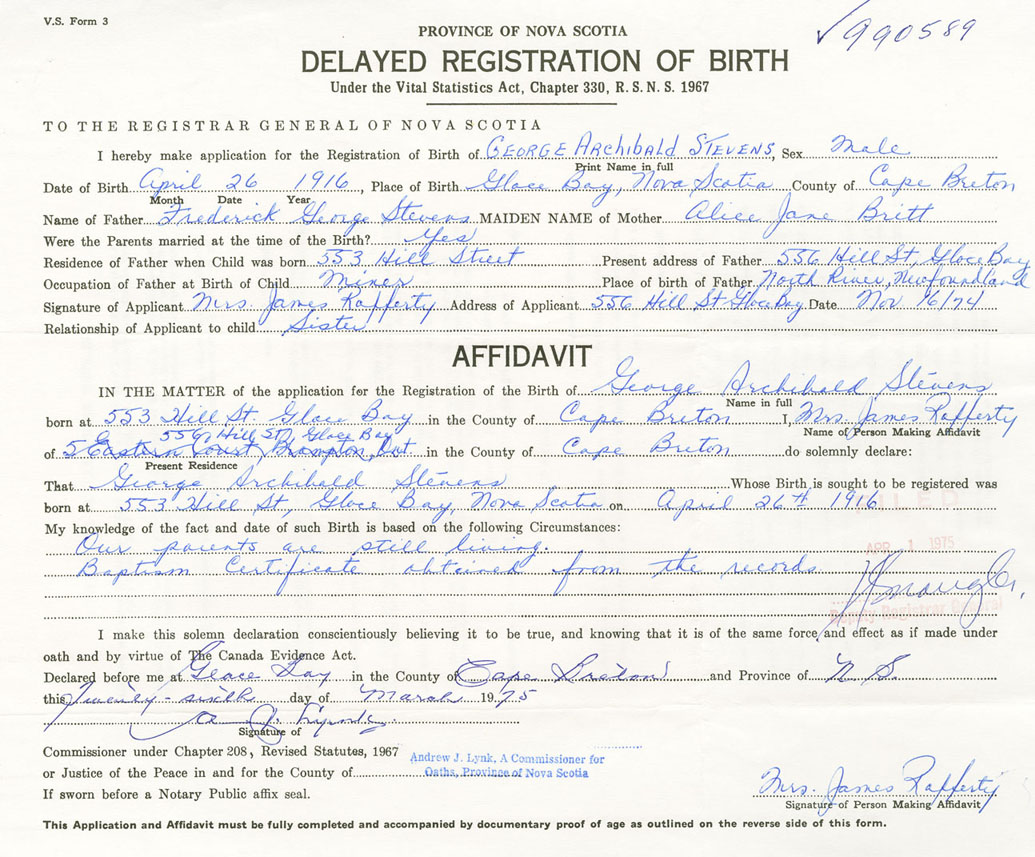 V.S. Form 3
✓990589
PROVINCE OF NOVA SCOTIA
DELAYED REGISTRATION OF BIRTH
Under the Vital Statistics Act, Chapter 330, R. S. N. S. 1967
TO THE REGISTRAR GENERAL OF NOVA SCOTIA
I hereby make application for the Registration of Birth of GEORGE ARCHIBALD STEVENS, Sex Male
Print Name in full
Date of Birth April 26 1916, Place of Birth Glace Bay, Nova Scotia, County of Cape Breton
Month Date Year
Name of Father Frederick George Stevens MAIDEN NAME of Mother Alice Jane Britt
Were the Parents married at the time of the Birth? Yes
Residence of Father when Child was born 553 Hill Street Present address of Father 556 Hill St Glace Bay
Occupation of Father at Birth of Child Miner Place of birth of Father North River, Newfoundland
Signature of Applicant Mrs. James Rafferty Address of Applicant 556 Hill St Glace Bay Date Nov 16/74
Relationship of Applicant to child Sister
AFFIDAVIT
IN THE MATTER of the application for the Registration of the Birth of George Archibald Stevens
Name in full
born at 553 Hill St. Glace Bay in the County of Cape Breton I, Mrs. James Rafferty
Name of Person Making Affidavit
556 Hill St Glace Bay
of Eastern Court, Brampton, Ont in the County of Cape Breton do solemnly declare:
Present Residence
That George Archibald Stevens Whose Birth is sought to be registered was
born at 553 Hill St, Glace Bay, Nova Scotia on April 26th 1916
FILED
My knowledge of the fact and date of such Birth is based on the following Circumstances:
Our parents are still living.
APR 1 1975
Baptism Certificate obtained from the records
Deputy Registrar General
I make this solemn declaration conscientiously believing it to be true, and knowing that it is of the same force and effect as if made under
oath and by virtue of The Canada Evidence Act.
Declared before me at Glace Bay in the County of Cape Breton and Province of N.S.
this Twenty-sixth day of March 1975
A. J. Lynk
Signature of
Commissioner under Chapter 208, Revised Statutes, 1967
Andrew J. Lynk, A Commissioner for
or Justice of the Peace in and for the County of
Oaths, Province of Nova Scotia
If sworn before a Notary Public affix seal.
Mrs. James Rafferty
Signature of Person Making Affidavit
This Application and Affidavit must be fully completed and accompanied by documentary proof of age as outlined on the reverse side of this form.